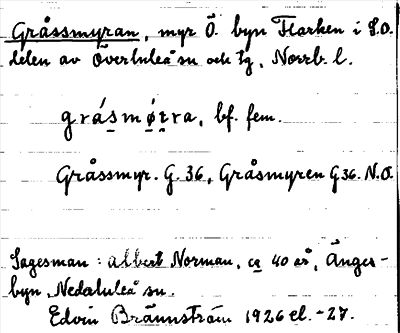 Gråssmyran, myr Ö. byn Flarken i S.O.
delen av Överluleå sn och tg, Norrb. l.
grásmǿ̣tra, bf. fem.
Gråssmyr. G. 36, Gråsmyren G 36. N.O.
Sagesman: Albert Norman, ca 40 år, Änges-
byn, Nederluleå sn.
Edvin Brännström 1926 el. -27.